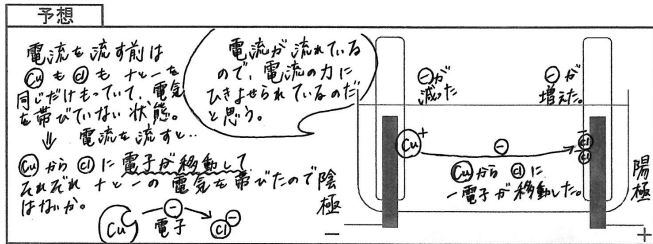 予想
電流を流す前は
Cuもclも+と-を
同じだけもっていて、電気
を帯びていない状態。
⇓ 電流を流すと…
Cuからclに電子が移動して
それぞれ+と-の電気を帯びたので
はないか。
Cu - 電子 cl-
電流が流れている
ので、電流の力に
ひきよせられているのだ
と思う。
-が
減った
-が
増えた。
Cu+
-
-
cl
cl
Cuからclに
-電子が移動した。
陰極
-
陽極
+